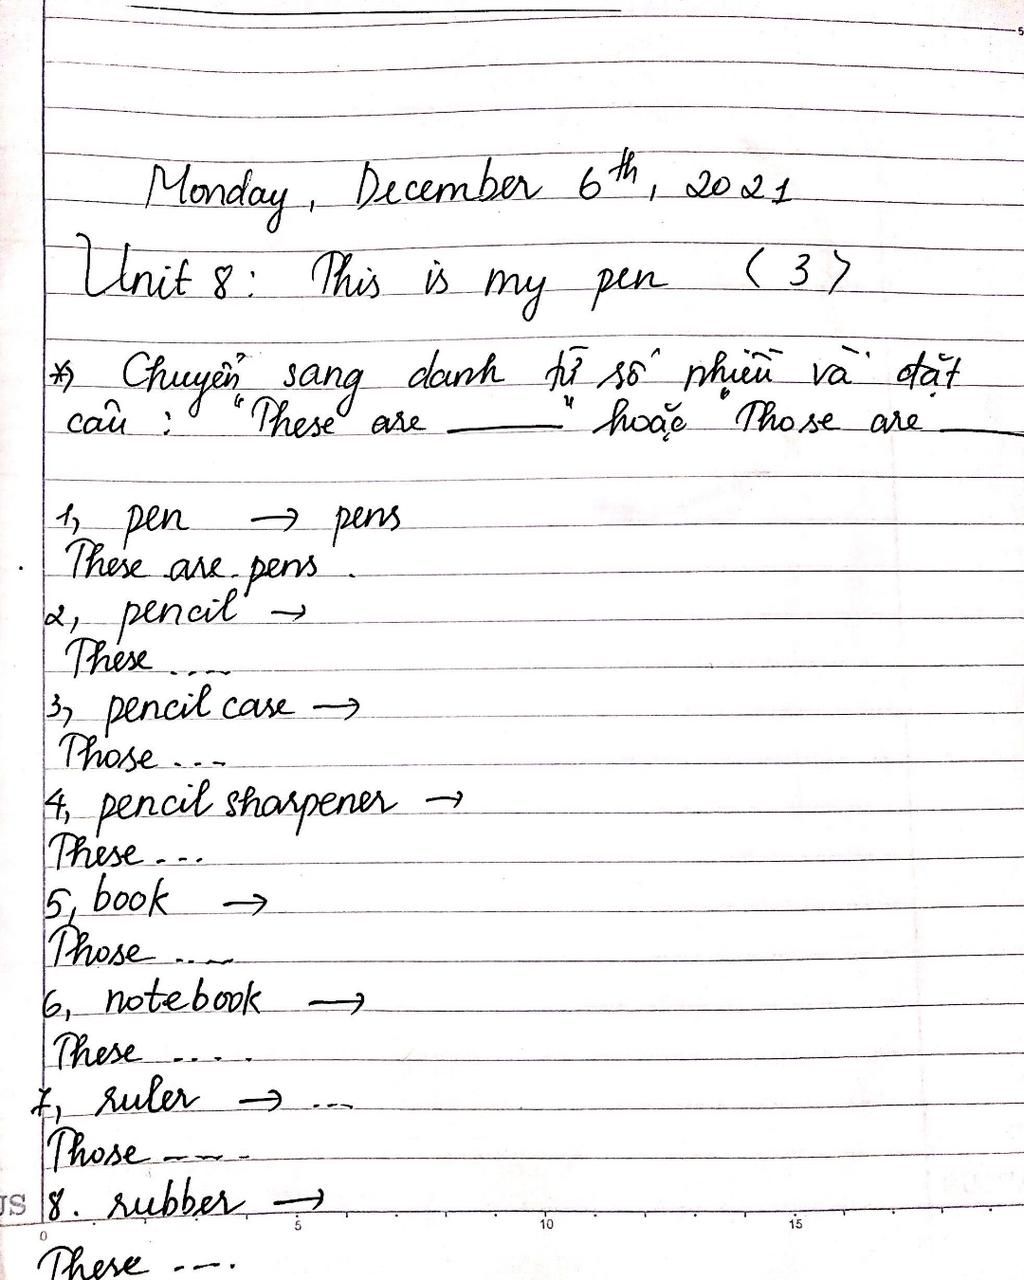 Monday, December 6th, 2021
Unit 8: This is my pen (3)
*) Chuyển sang danh từ số nhiều và đặt
câu : "These are ______" hoặc "Those are ____
1, pen → pens
These are pens .
2, pencil →
These ....
3, pencil case →
Those ...
4, pencil sharpener →
These ...
5, book →
Those ....
6, notebook →
These ....
7, ruler → ...
Those ....
8. rubber →
These ....
JS
0 5 10 15
5